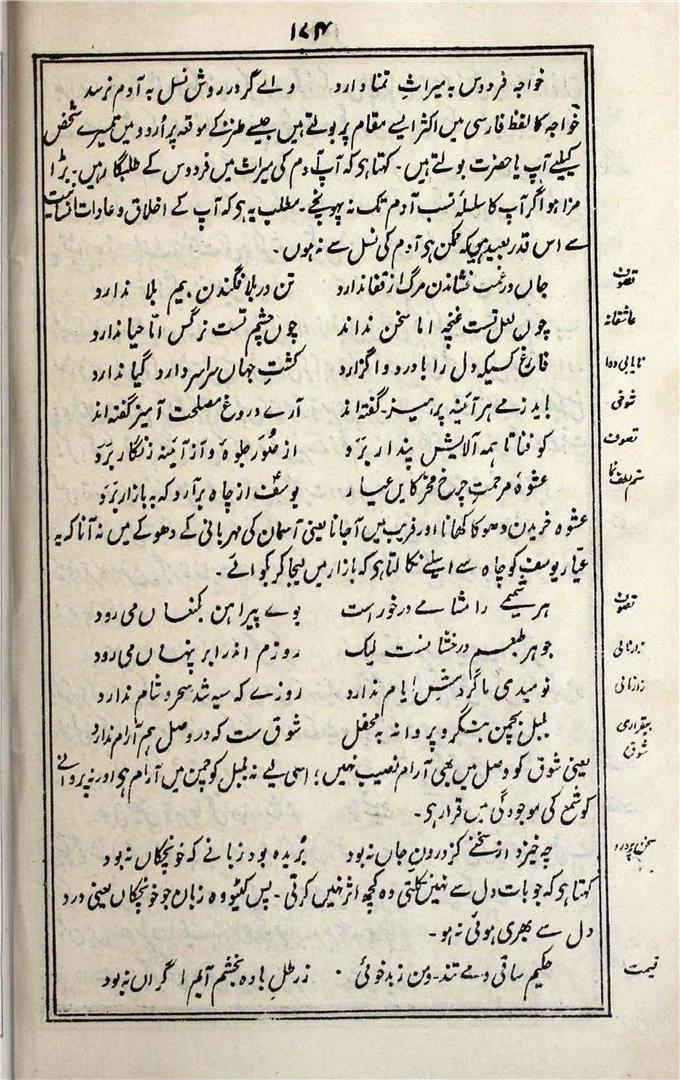 ۱۷۴
خواجہ فردوس بہ میراثِ تمنا دارد وائے گر در روشِ نسل بہ آدم نرسد
خواجہ کا لفظ فارسی میں اکثر ایسے مقام پر بولتے ہیں جیسے طنز کے موقعہ پر اُردو میں تیسرے شخص
کیلیے آپ یا حضرت بولتے ہیں۔ کہتا ہی کہ آپ آدم کی میراث میں فردوس کے طلبگار ہیں۔ بڑا
مزا ہو اگر آپ کا سلسلۂ نسب آدم تک نہ پہونچے۔ مطلب یہ ہی کہ آپ کے اخلاق و عادات انسانیت
سے اس قدر بعید ہیں کہ ممکن ہی آدم کی نسل سے نہ ہوں۔
تصوف جاں در غمت فشاندن مرگ از قفا ندارد تن در بلا فگندن بیم بلا ندارد
عاشقانہ چوں لعل تست غنچہ اما سخن نداند چوں چشم تست نرگس امّا حیا ندارد
نایابی دوا فارغ کسیکہ دل را با درد واگزارد کشتِ جہاں سراسر دارد گیا ندارد
شوخی باید ز مے ہر آئینہ پرہیز۔ گفتہ اند آرے دروغِ مصلحت آمیز گفتہ اند
تصوف کو فنا تا ہمہ آلایش پندار برَد از صُوَر جلوہ و از آئنہ زنگار برَد
عشوۂ مرحمتِ چرخ مخر کایں عیار یوسف از چاہ برآرد کہ بہ بازار برَد
عشوہ خریدن دھوکا کھانا اور فریب میں آجانا یعنی آسمان کی مہربانی کے دھوکے میں نہ آنا کہ یہ
عیّار یوسف کو چاہ سے اسلیے نکالتا ہی کہ بازار میں لیجا کر بکوائے۔
تصوف ہر شمیمے را مشامے درخور است بوے پیراہن بکنعاں می رود
نازنالی جوہر طبعم درخشانست لیک روزم اندر ابر پنہاں می رود
زارنالی نومیدیِ ما گردشِ ایام ندارد روزے کہ سیہ شد سحر و شام ندارد
بیقراری شوق بلبل بچمن بنگر و پروانہ بہ محفل شوق ست کہ در وصل ہم آرام ندارد
یعنی شوق کو وصل میں بھی آرام نصیب نہیں؛ اسی لیے نہ بلبل کو چمن میں آرام ہی اور نہ پروانے
کو شمع کی موجودگی میں قرار ہی۔
سخن پردرد چہ خیزد از سخنے کز درونِ جاں نہ بود بُریدہ بود زبانے کہ خونچکاں نہ بود
کہتا ہی کہ جو بات دل سے نہیں نکلتی وہ کچھ اثر نہیں کرتی۔ پس کٹیو وہ زبان جو خونچکاں یعنی درد
دل سے بھری ہوئی نہ ہو۔
قیمت حکیم ساقی و مے تند۔ و من ز بدخوئی ز رطلِ بادہ بخشم آیم اگر اں نہ بود